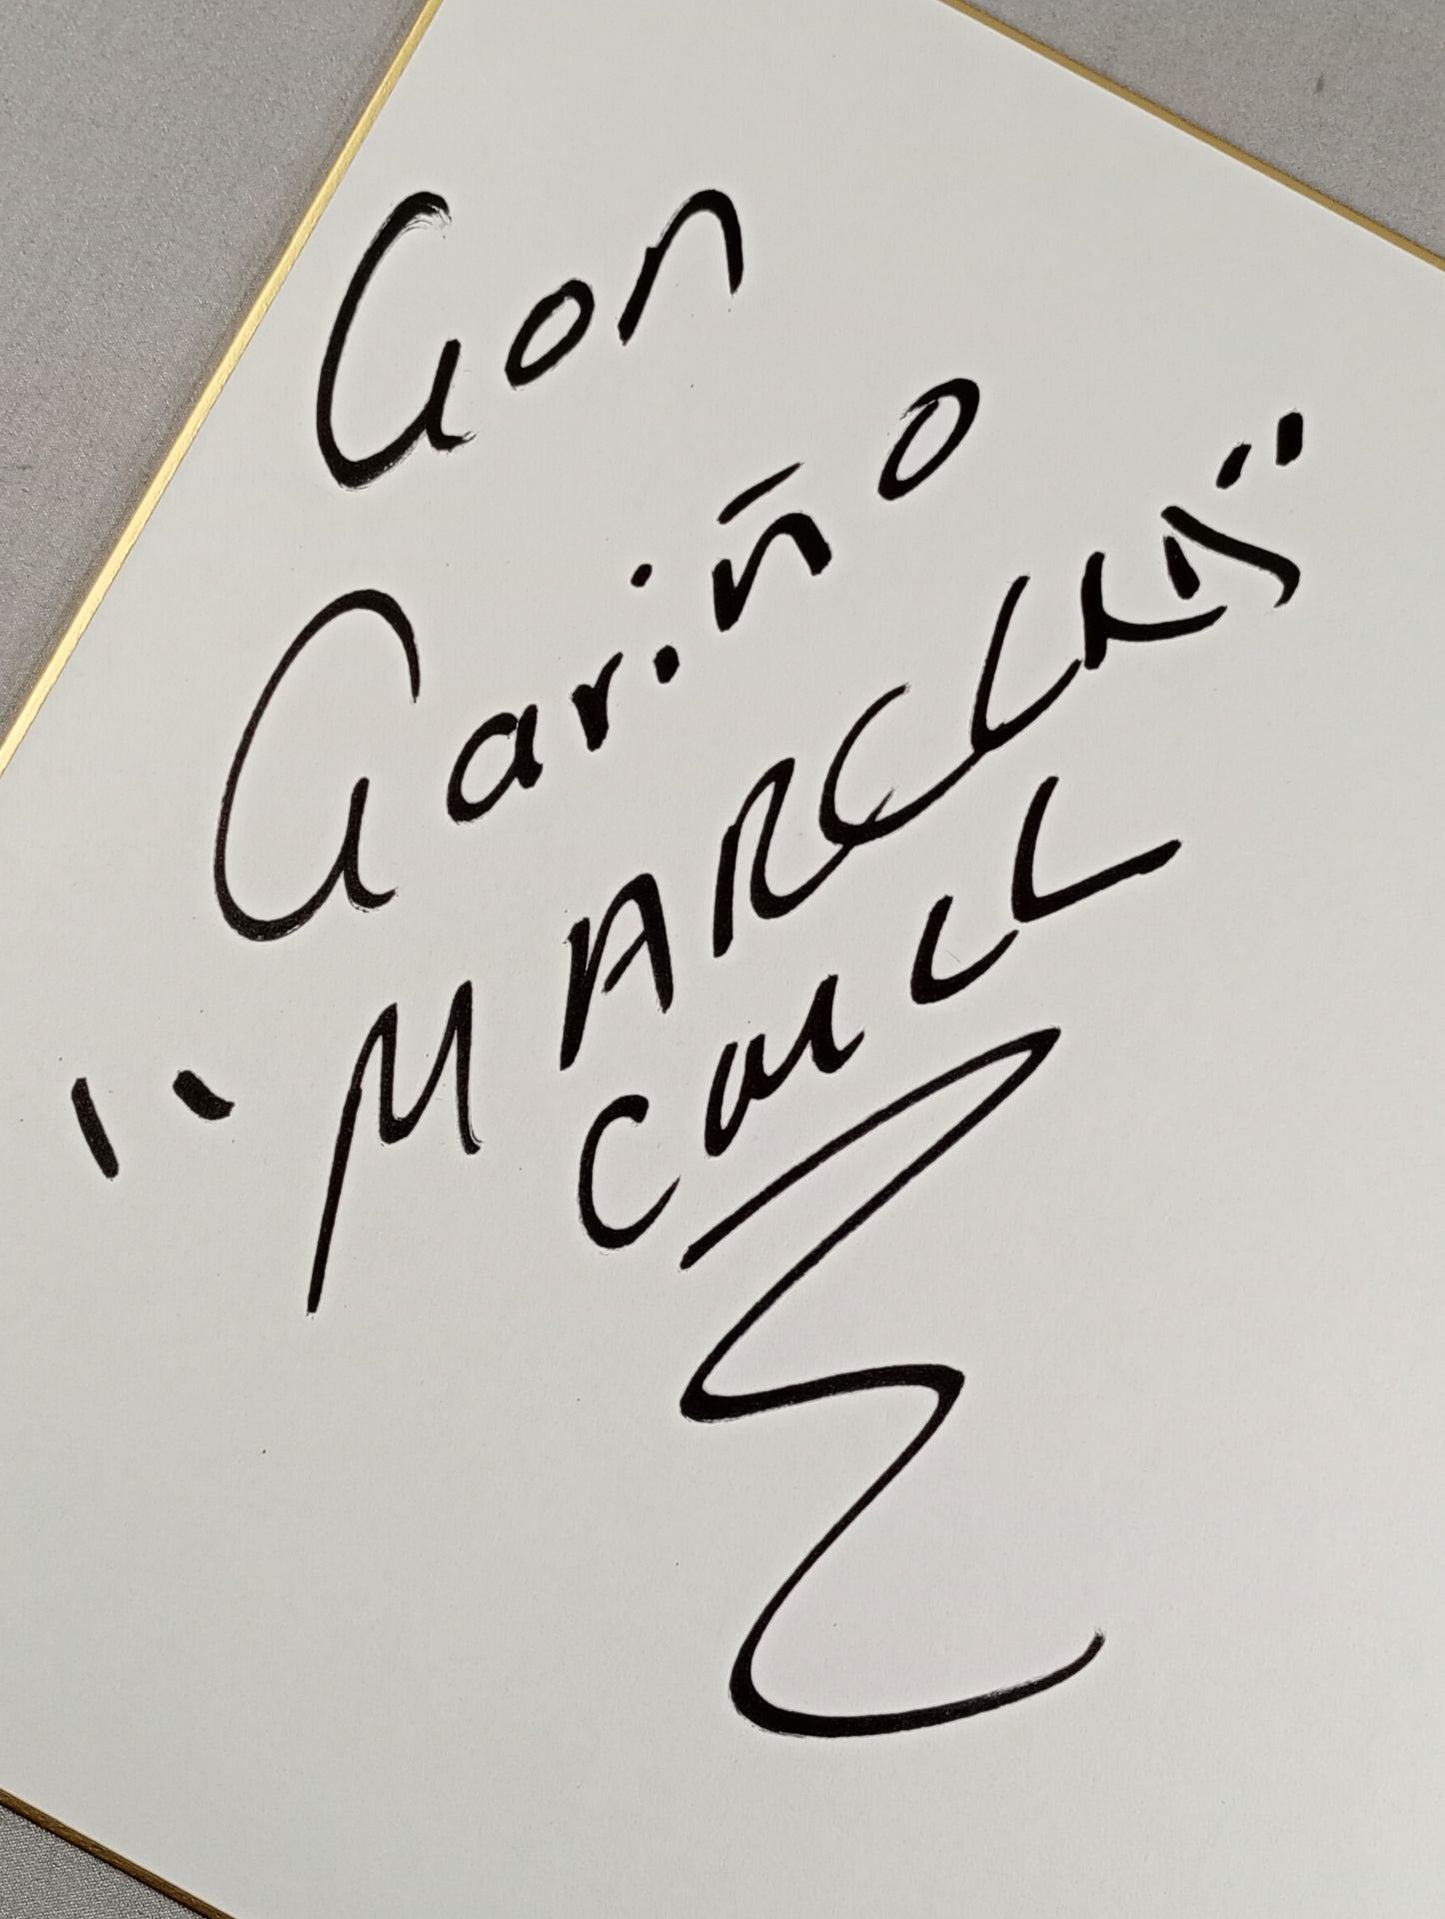 Con
Cariño
"MARCELA"
CMLL